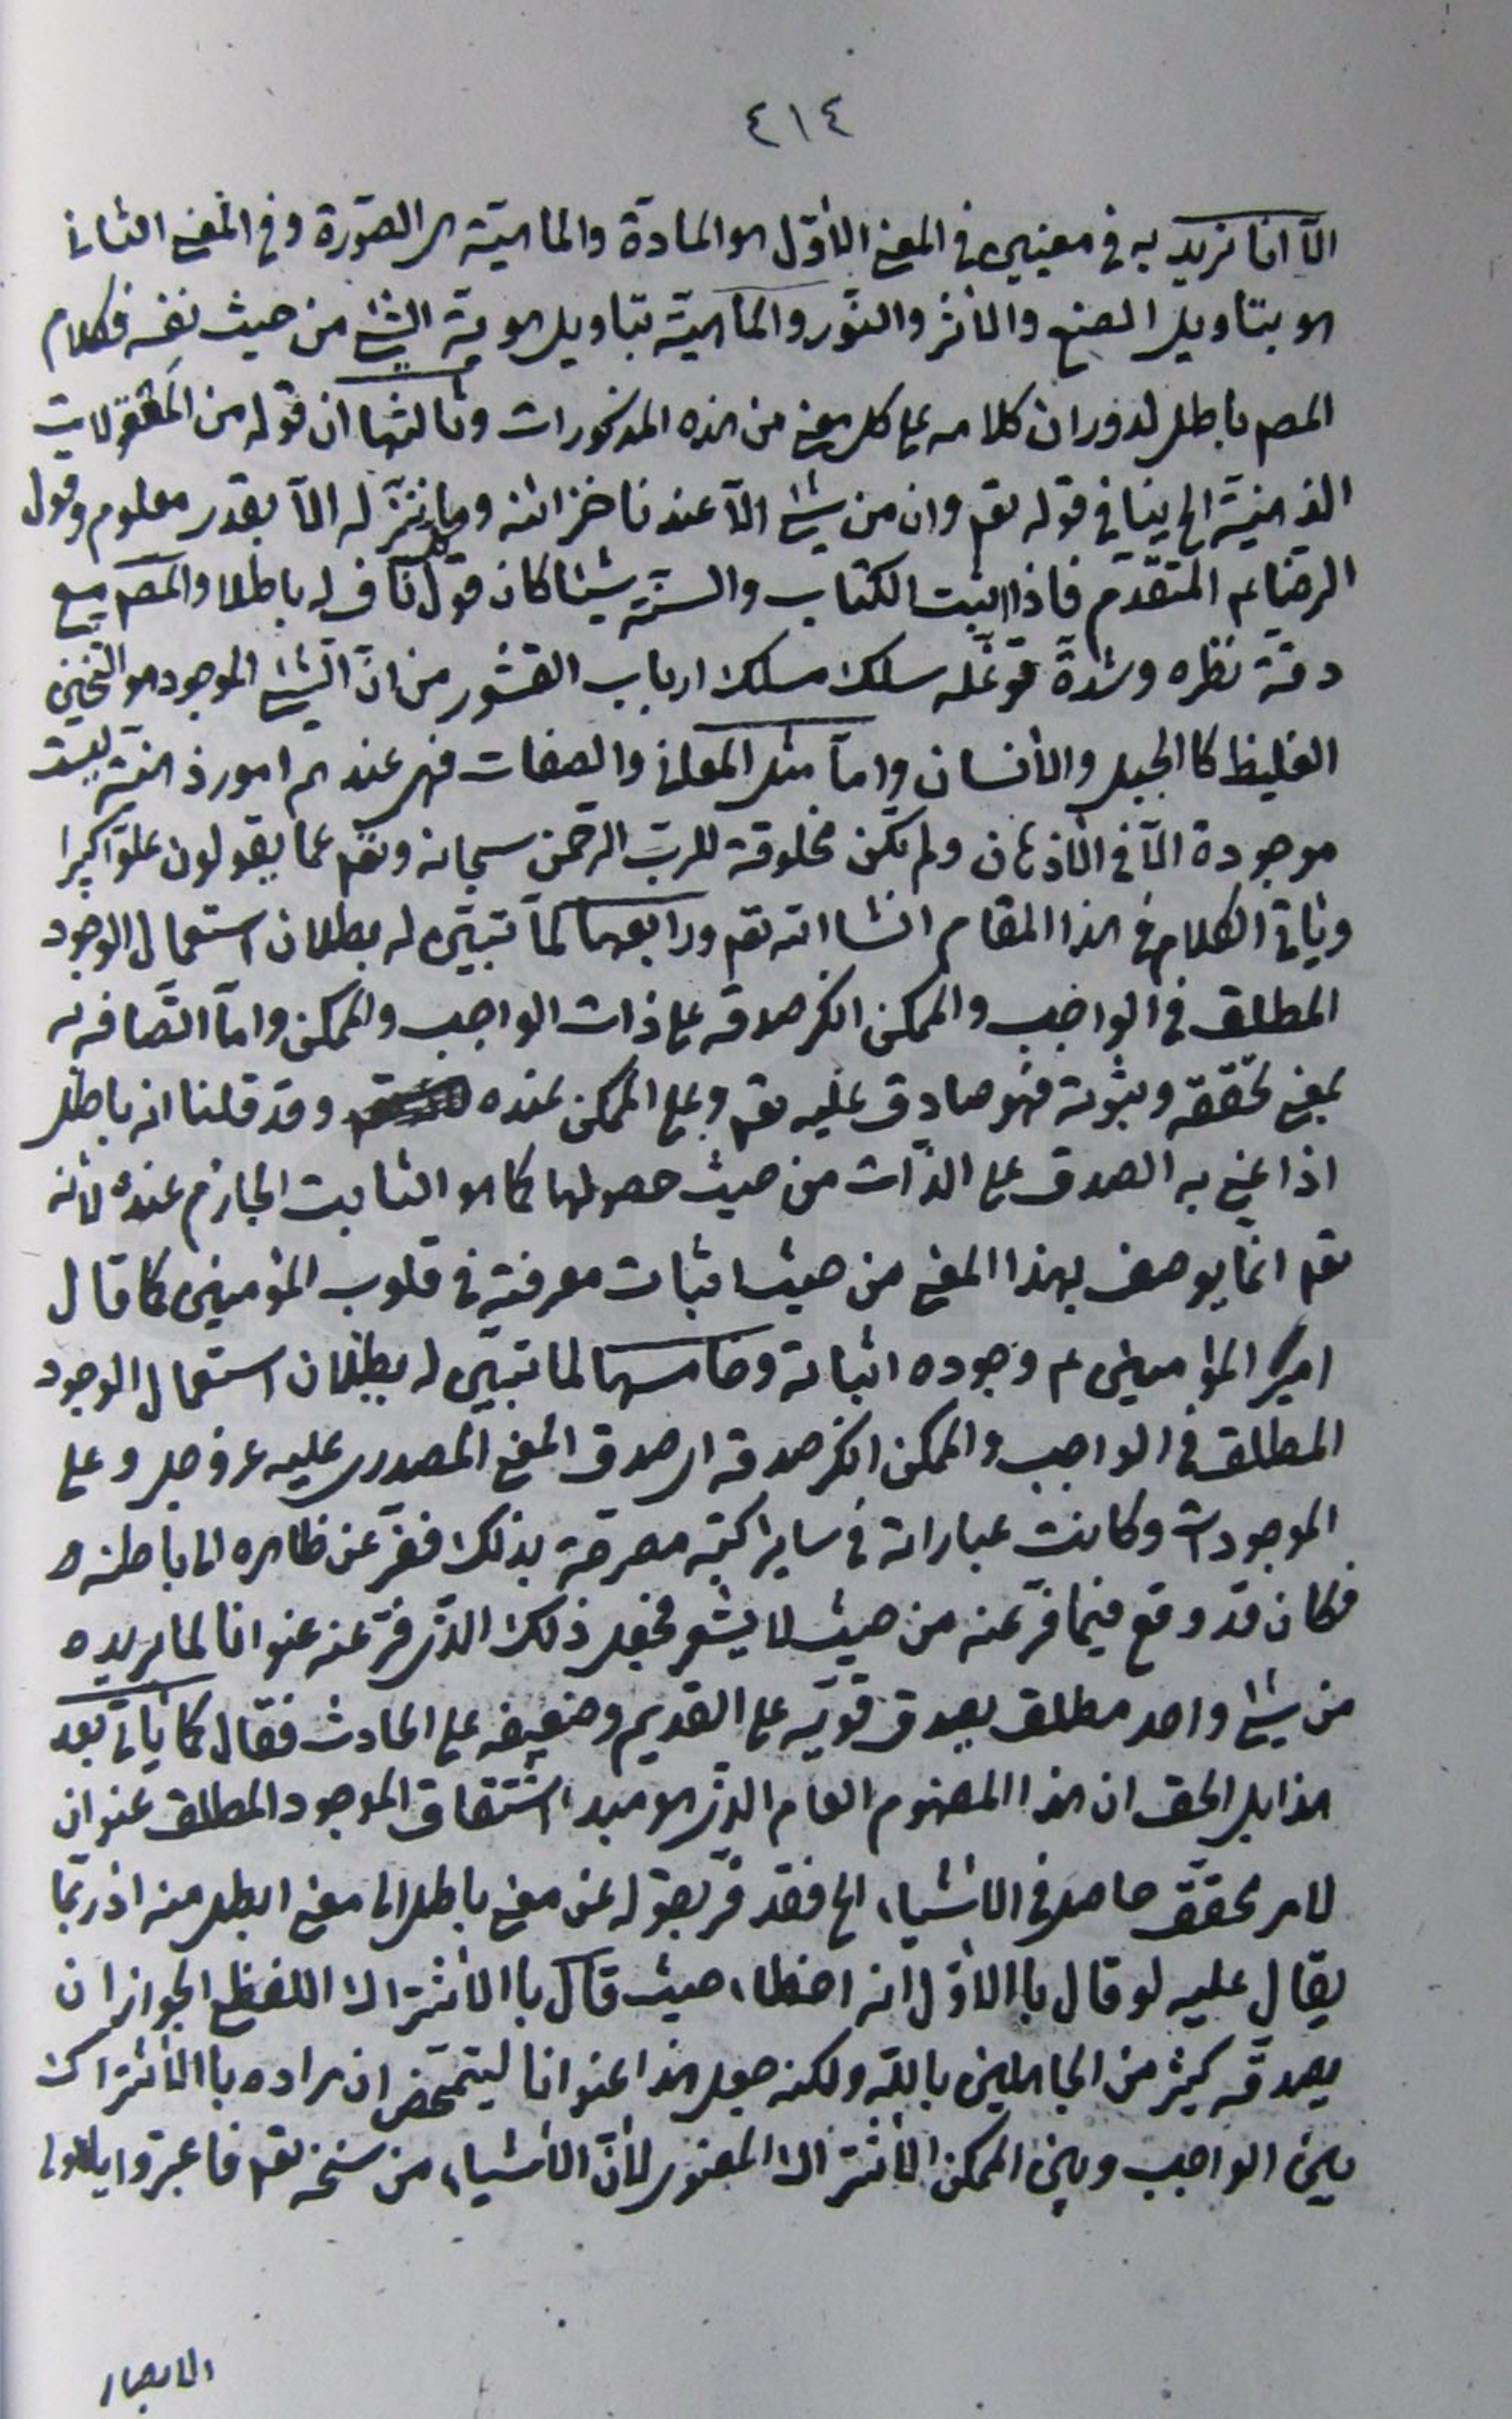 ٤١٤
الّا انا نريد به في معنيين في المعنى الأوّل هو المادّة والماهيّة هي الصّورة وفي المعنى الثاني
هو بتاويل الصنع والأثر والنّور والماهيّة بتاويل هوية الشيء من حيث نفسه فكلام
المصم باطل لدوران كلامه على كل معنى من هذه المذكورات وثالثها ان قوله من المعقولات
الذهنيّة الخ ينافي قوله تعم وان من شيء الّا عندنا خزائنه وما ننزّله الّا بقدر معلوم وقول
الرضا عم المتقدّم فاذا اثبت الكتاب والسنّة شيئا كان قول نافيه باطلا والمصم مع
دقّة نظره وشدّة توغّله سلك مسلك ارباب القشور من انّ الشيء الموجود هو الثخين
الغليظ كالجبل والأنسان وامّا مثل المعاني والصفات فهي عندهم امور ذهنيّة ليست
موجودة الّا في الأذهان ولم تكن مخلوقة للربّ الرحمن سبحانه وتعم عما يقولون علوّا كبيرا
وياتي الكلام في هذا المقام انشاالله تعم ورابعها لمّا تبيّن له بطلان استعمال الوجود
المطلق في الواجب والممكن انكر صدقه على ذات الواجب والممكن وامّا اتّصافه به
بمعنى تحقّقه وثبوته فهو صادق عليه تعم وعلى الممكن عنده وقد قلنا انه باطل
اذا عني به الصدق على الذّات من حيث حصولها كما هو الثابت الجازم عنده لأنه
تعم انّما يوصف بهذا المعنى من حيث اثبات معرفته في قلوب المؤمنين كما قال
امير المؤامنين عم وجوده اثباته وخامسها لما تبيّن له بطلان استعمال الوجود
المطلق في الواجب والممكن انكر صدقه اي صدق المعنى المصدري عليه عز وجل وعلى
الموجودات وكانت عباراته في ساير كتبه مصرحة بذلك ففرّ عن ظاهره الى باطنه و
فكان قد وقع فيما فرّ عنه من حيث لا يشعر فجعل ذلك الذي فرّ عنه عنوانا لما يريده
من شيء واحد مطلق يصدق قويّه على القديم وضعيفه على الحادث فقال كما ياتي بعد
هذا بل الحق ان هذا المفهوم العام الذي هو مبدء اشتقاق الموجود المطلق عنوان
لامر محقّق حاصل في الأشياء الخ فقد فرّ بقوله عن معنى باطل الى معنى ابطل منه اذ ربّما
يقال عليه لو قال باالأوّل انه اخطاء حيث قال باالأشتراك اللفظي لجواز ان
يصدقه كثير من الجاهلين بالله ولكنه جعل هذا عنوانا ليتمحّض ان مراده باالأشتراك
بين الواجب وبين الممكن الأشتراك المعنوي لأنّ الأشياء من سنخه تعم فاعتبروا يا اولى
الابصار